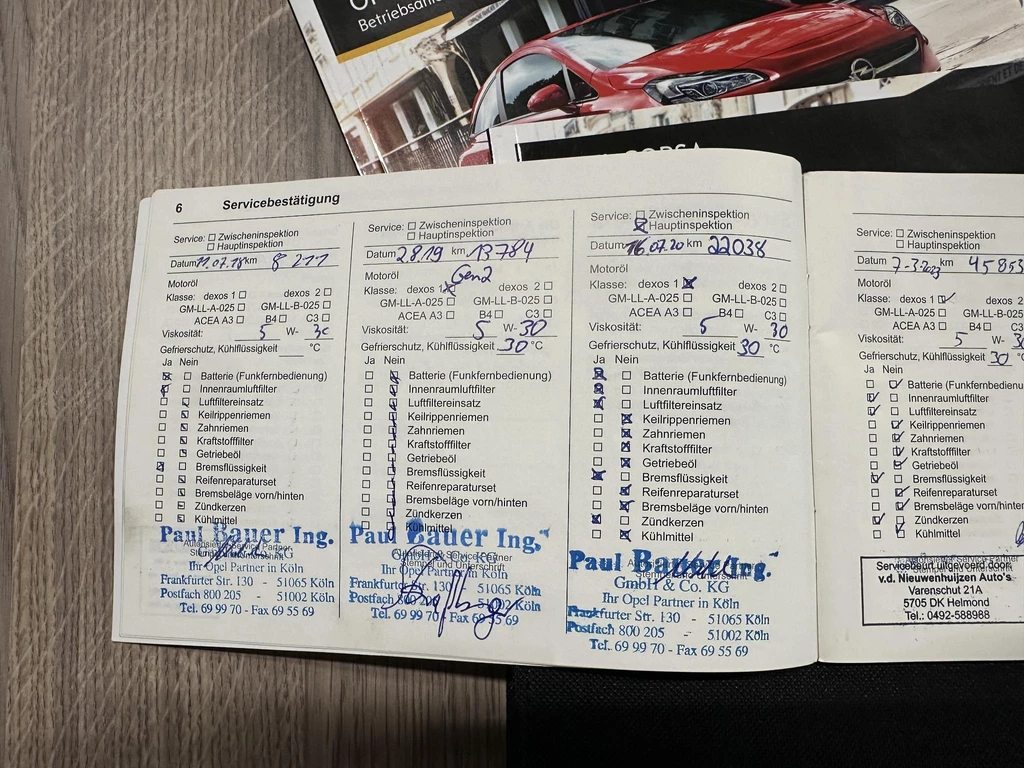 Betriebsanl
CORSA
6 Servicebestätigung
Service: Zwischeninspektion
Hauptinspektion
Datum 11.07.18 km 8 211
Motoröl
Klasse: dexos 1 dexos 2
GM-LL-A-025 GM-LL-B-025
ACEA A3 B4 C3
Viskosität: 5 W- 30
Gefrierschutz, Kühlflüssigkeit °C
Ja Nein
Batterie (Funkfernbedienung)
Innenraumluftfilter
Luftfiltereinsatz
Keilrippenriemen
Zahnriemen
Kraftstofffilter
Getriebeöl
Bremsflüssigkeit
Reifenreparaturset
Bremsbeläge vorn/hinten
Zündkerzen
Kühlmittel
Paul Bauer Ing.
Autorisierter Service Partner
Ihr Opel Partner in Köln
Frankfurter Str. 130 - 51065 Köln
Postfach 800 205 - 51002 Köln
Tel. 69 99 70 - Fax 69 55 69
Service: Zwischeninspektion
Hauptinspektion
Datum 2.8.19 km 13784
Motoröl Gen2
Klasse: dexos 1 dexos 2
GM-LL-A-025 GM-LL-B-025
ACEA A3 B4 C3
Viskosität: 5 W- 30
Gefrierschutz, Kühlflüssigkeit 30 °C
Ja Nein
Batterie (Funkfernbedienung)
Innenraumluftfilter
Luftfiltereinsatz
Keilrippenriemen
Zahnriemen
Kraftstofffilter
Getriebeöl
Bremsflüssigkeit
Reifenreparaturset
Bremsbeläge vorn/hinten
Zündkerzen
Kühlmittel
Paul Bauer Ing.
Stempel und Unterschrift
Ihr Opel Partner in Köln
Frankfurter Str. 130 51065 Köln
Postfach 800 205 51002 Köln
Tel. 69 99 70 - Fax 69 55 69
Service: Zwischeninspektion
Hauptinspektion
Datum 16.07.20 km 22038
Motoröl
Klasse: dexos 1 dexos 2
GM-LL-A-025 GM-LL-B-025
ACEA A3 B4 C3
Viskosität: 5 W- 30
Gefrierschutz, Kühlflüssigkeit 30 °C
Ja Nein
Batterie (Funkfernbedienung)
Innenraumluftfilter
Luftfiltereinsatz
Keilrippenriemen
Zahnriemen
Kraftstofffilter
Getriebeöl
Bremsflüssigkeit
Reifenreparaturset
Bremsbeläge vorn/hinten
Zündkerzen
Kühlmittel
Paul Bauer Ing.
GmbH & Co. KG
Ihr Opel Partner in Köln
Frankfurter Str. 130 - 51065 Köln
Postfach 800 205 - 51002 Köln
Tel. 69 99 70 - Fax 69 55 69
Service: Zwischeninspektion
Hauptinspektion
Datum 7-3-2023 km 45853
Motoröl
Klasse: dexos 1 dexos 2
GM-LL-A-025 GM-LL-B-025
ACEA A3 B4 C3
Viskosität: 5 W- 30
Gefrierschutz, Kühlflüssigkeit 30 °C
Ja Nein
Batterie (Funkfernbedienu
Innenraumluftfilter
Luftfiltereinsatz
Keilrippenriemen
Zahnriemen
Kraftstofffilter
Getriebeöl
Bremsflüssigkeit
Reifenreparaturset
Bremsbeläge vorn/hinten
Zündkerzen
Kühlmittel
Servicebeurt uitgevoerd door:
v.d. Nieuwenhuijzen Auto's
Varenschut 21A
5705 DK Helmond
Tel.: 0492-588988